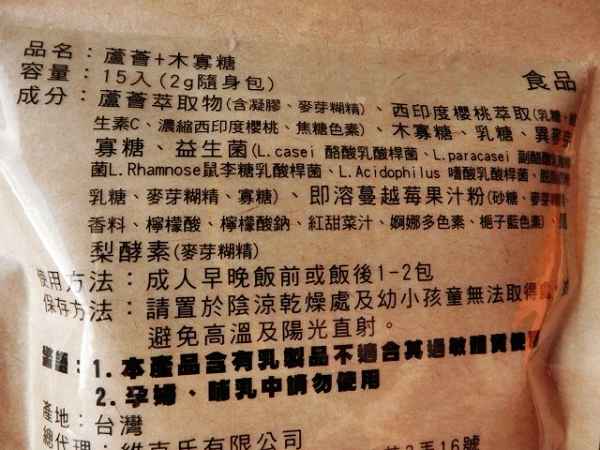 品名：蘆薈+木寡糖
容量：15入(2g隨身包)
食品
成分：蘆薈萃取物(含凝膠、麥芽糊精)、西印度櫻桃萃取(乳糖、
生素C、濃縮西印度櫻桃、焦糖色素)、木寡糖、乳糖、異麥芽
寡糖、益生菌(L.casei 酪酸乳酸桿菌、L.paracasei 副酪酸乳酸桿
菌L.Rhamnose鼠李糖乳酸桿菌、L.Acidophilus 嗜酸乳酸桿菌、
乳糖、麥芽糊精、寡糖)、即溶蔓越莓果汁粉(砂糖、麥芽糊精
香料、檸檬酸、檸檬酸鈉、紅甜菜汁、婀娜多色素、梔子藍色素)、
梨酵素(麥芽糊精)
使用方法：成人早晚飯前或飯後1-2包
保存方法：請置於陰涼乾燥處及幼小孩童無法取得
避免高溫及陽光直射。
警語：1.本產品含有乳製品不適合其過敏體質使用
2.孕婦、哺乳中請勿使用
產地：台灣
總代理：維克氏有限公司
2弄16號